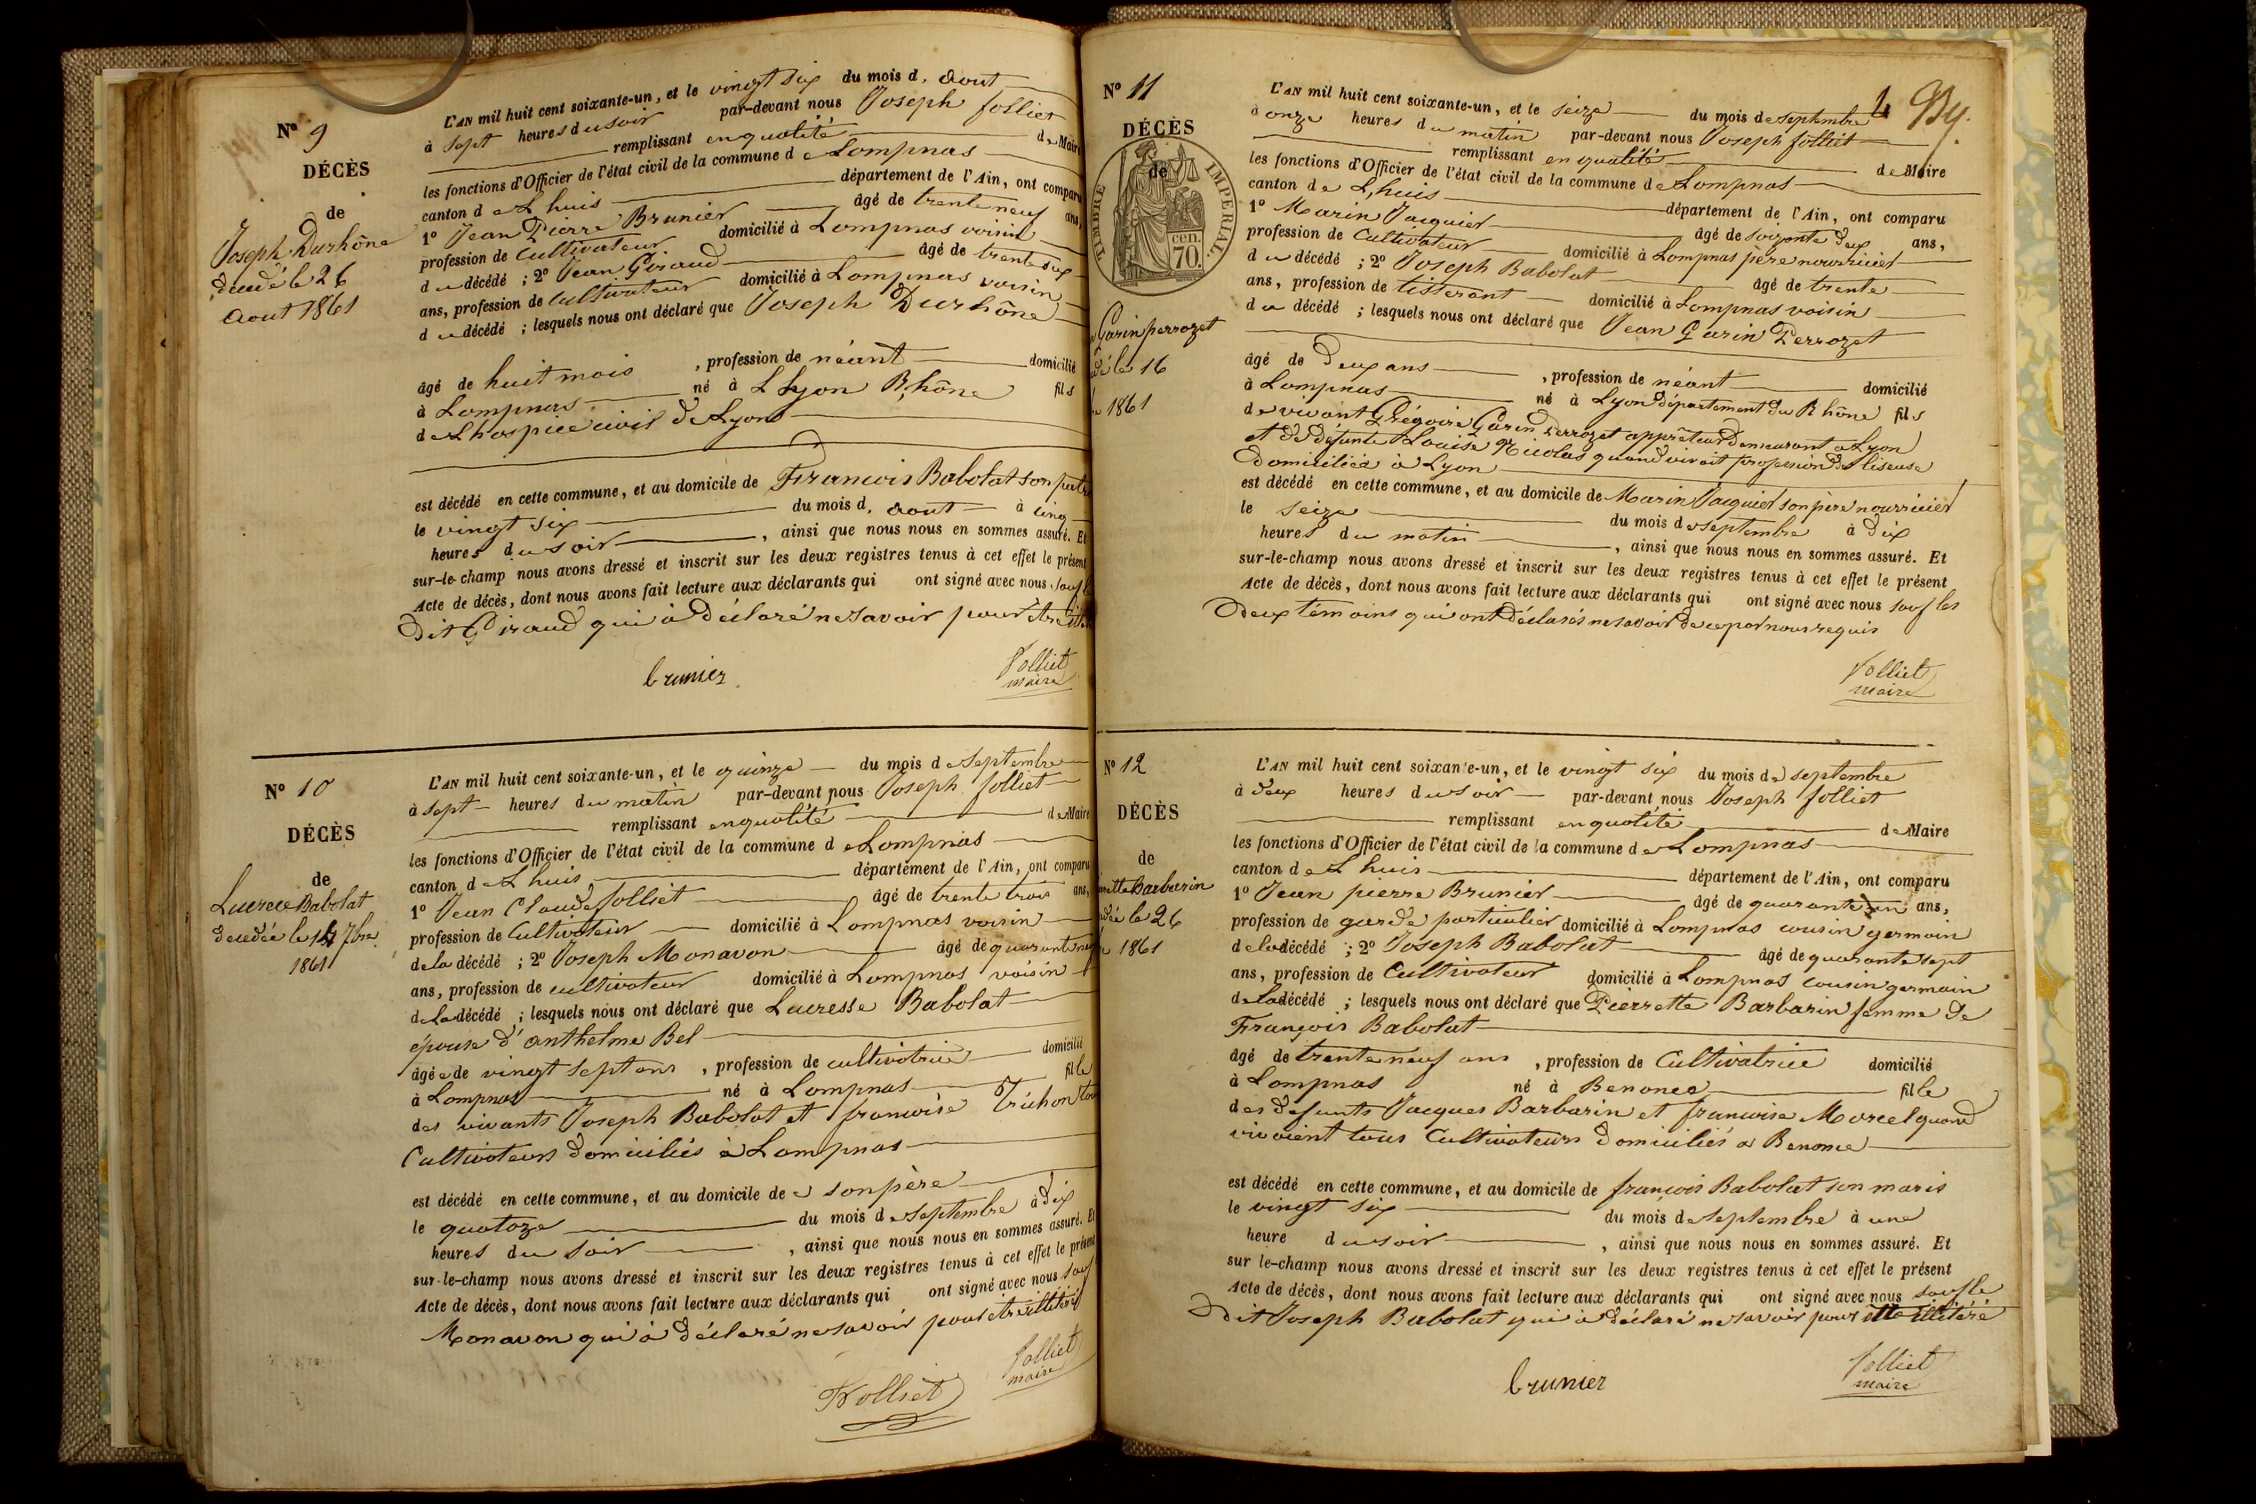 Nº 9
DÉCÈS
de
Joseph Durhône
décédé le 26
aout 1861
L'AN mil huit cent soixante-un, et le vingt six du mois d. aout
à sept heures du soir par-devant nous Joseph Jolliet
remplissant en qualité de Maire
les fonctions d'Officier de l'état civil de la commune de Lompnas
canton de Lhuis département de l'Ain, ont comparu
1º Jean Pierre Brunier âgé de trente neuf ans,
profession de cultivateur domicilié à Lompnas voisin
du décédé ; 2º Jean Giraud âgé de trente six
ans, profession de Cultivateur domicilié à Lompnas voisin
du décédé ; lesquels nous ont déclaré que Joseph Durhône
âgé de huit mois , profession de néant domicilié
à Lompnas né à Lyon Rhône fils
de Lhospice civil de Lyon
est décédé en cette commune, et au domicile de Francois Babolat son
le vingt six du mois d. aout à cinq
heures du soir , ainsi que nous nous en sommes assuré. Et
sur-le-champ nous avons dressé et inscrit sur les deux registres tenus à cet effet le présent
Acte de décès, dont nous avons fait lecture aux déclarants qui ont signé avec nous sauf le
dit Giraud qui à déclaré ne savoir pour être
brunier
Jolliet
maire
Nº 10
DÉCÈS
de
Lucrece Babolat
décédée le 14 7bre
1861
L'AN mil huit cent soixante-un, et le quinze du mois de septembre
à sept heures du matin par-devant nous Joseph Jolliet
remplissant en qualité de Maire
les fonctions d'Officier de l'état civil de la commune de Lompnas
canton de Lhuis département de l'Ain, ont comparu
1º Jean Claude Jolliet âgé de trente trois ans,
profession de Cultivateur domicilié à Lompnas voisin
de la décédé ; 2º Joseph Monavon âgé de quarante
ans, profession de cultivateur domicilié à Lompnas voisin
de la décédé ; lesquels nous ont déclaré que Lucresse Babolat
épouse d'anthelme Bel
âgée de vingt sept ans , profession de cultivatrice domicilié
à Lompnas né à Lompnas fille
des vivants Joseph Babolat et francoise Trichon
Cultivateurs domiciliés à Lompnas
est décédé en cette commune, et au domicile de son père
le quatoze du mois de septembre à dix
heures du soir , ainsi que nous nous en sommes assuré. Et
sur-le-champ nous avons dressé et inscrit sur les deux registres tenus à cet effet le présent
Acte de décès, dont nous avons fait lecture aux déclarants qui ont signé avec nous sauf
Monavon qui à déclaré ne savoir pour être illitéré
Jolliet
maire
Jolliet
Nº 11
DÉCÈS
de
TIMBRE IMPERIAL
70.
cen.
Garin perrozet
dé le 16
1861
4
L'AN mil huit cent soixante-un, et le seize du mois de septembre
à onze heures du matin par-devant nous Joseph Jolliet
remplissant en qualité de Maire
les fonctions d'Officier de l'état civil de la commune de Lompnas
canton de Lhuis département de l'Ain, ont comparu
1º Marin Jacquier âgé de soixante deux ans,
profession de Cultivateur domicilié à Lompnas père nourricier
du décédé ; 2º Joseph Babolat âgé de trente
ans, profession de tisserant domicilié à Lompnas voisin
du décédé ; lesquels nous ont déclaré que Jean Garin Perrozet
âgé de deux ans , profession de néant domicilié
à Lompnas né à Lyon département du Rhône fils
de vivant Grégoire Garin Perrozet apprêteur demeurant à Lyon
et de défunte Louise Nicolas quand vivoit profession de liseuse
domiciliée à Lyon
est décédé en cette commune, et au domicile de Marin Jacquier son père nourricier
le seize du mois de septembre à dix
heures du matin , ainsi que nous nous en sommes assuré. Et
sur-le-champ nous avons dressé et inscrit sur les deux registres tenus à cet effet le présent
Acte de décès, dont nous avons fait lecture aux déclarants qui ont signé avec nous sauf les
deux témoins qui ont déclarés ne savoir de ce par nous requis
Jolliet
maire
Nº 12
DÉCÈS
de
Barbarin
dée le 26
1861
L'AN mil huit cent soixante-un, et le vingt six du mois de septembre
à deux heures du soir par-devant nous Joseph Jolliet
remplissant en qualité de Maire
les fonctions d'Officier de l'état civil de la commune de Lompnas
canton de Lhuis département de l'Ain, ont comparu
1º Jean pierre Brunier âgé de quarante un ans,
profession de garde particulier domicilié à Lompnas cousin germain
de la décédé ; 2º Joseph Babolat âgé de quarante sept
ans, profession de Cultivateur domicilié à Lompnas cousin germain
de la décédé ; lesquels nous ont déclaré que Pierrette Barbarin femme de
François Babolat
âgé de trente neuf ans , profession de Cultivatrice domicilié
à Lompnas né à Benonce fille
des defunts Jacques Barbarin et francoise Morcel quand
vivoient tous Cultivateurs domiciliés à Benonce
est décédé en cette commune, et au domicile de francois Babolat son maris
le vingt six du mois de septembre à une
heure du soir , ainsi que nous nous en sommes assuré. Et
sur le-champ nous avons dressé et inscrit sur les deux registres tenus à cet effet le présent
Acte de décès, dont nous avons fait lecture aux déclarants qui ont signé avec nous sauf le
dit Joseph Babolat qui à déclaré ne savoir pour être illitéré
brunier
Jolliet
maire